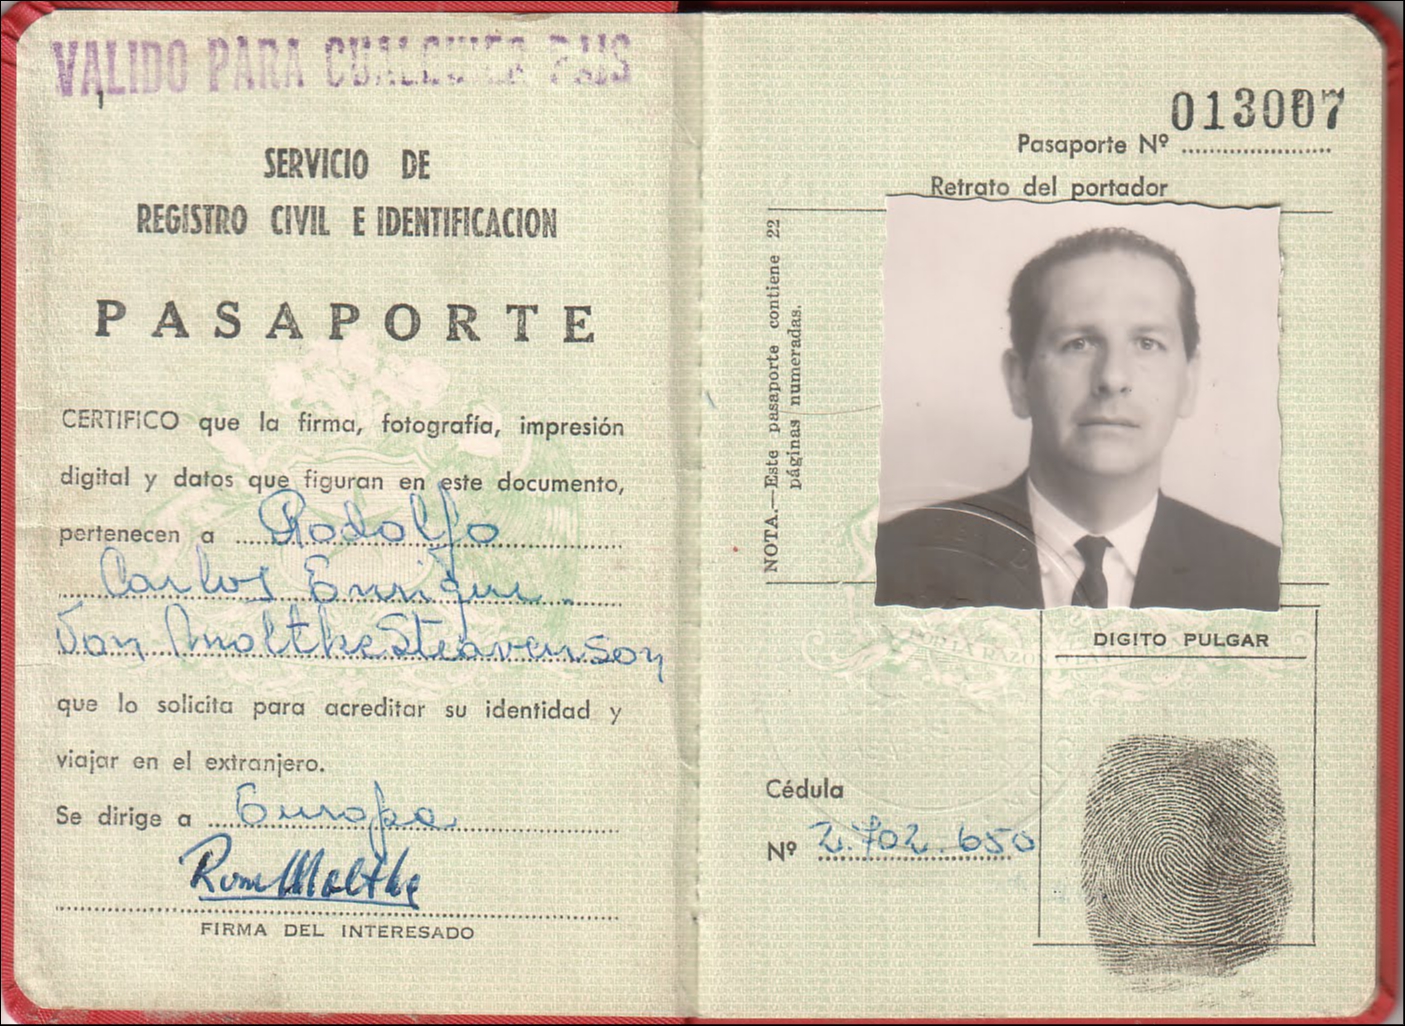 VALIDO PARA CUALQUIER PAIS
1
SERVICIO DE
REGISTRO CIVIL E IDENTIFICACION
PASAPORTE
CERTIFICO que la firma, fotografía, impresión
digital y datos que figuran en este documento,
pertenecen a Rodolfo
Carlos Enrique
Von Moltke Steavenson
que lo solicita para acreditar su identidad y
viajar en el extranjero.
Se dirige a Europa
Moltke
FIRMA DEL INTERESADO
013007
Pasaporte Nº
Retrato del portador
NOTA.—Este pasaporte contiene 22
páginas numeradas.
DIGITO PULGAR
Cédula
Nº 2.702.650